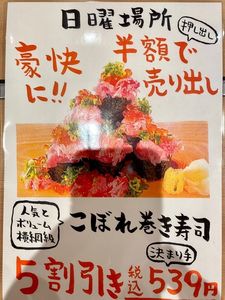 日曜場所
押し出し
豪快に!!
半額で
売り出し
人気と
ボリューム
横綱級
こぼれ巻き寿司
決まり手
5割引き 税込 539円